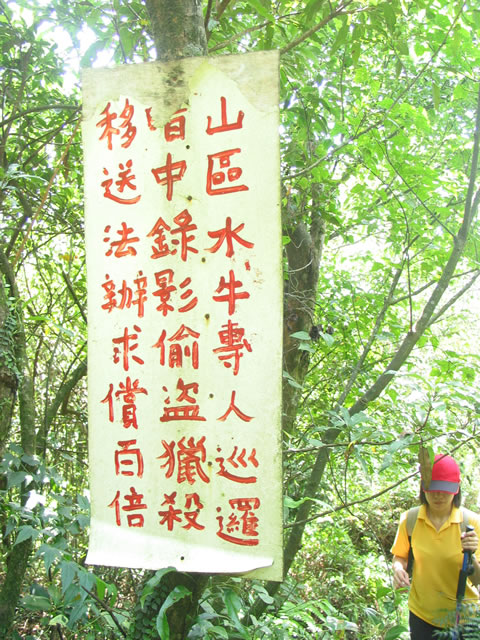 山區水牛專人巡邏
暗中錄影偷盜獵殺
移送法辦求償百倍